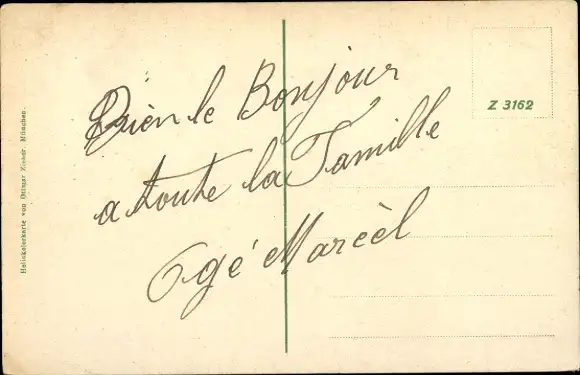 Bièn le Bonjour
a toute la Famille
Ogé Marcèl
Z 3162
Heliokolorkarte von Ottmar Zieher, München.